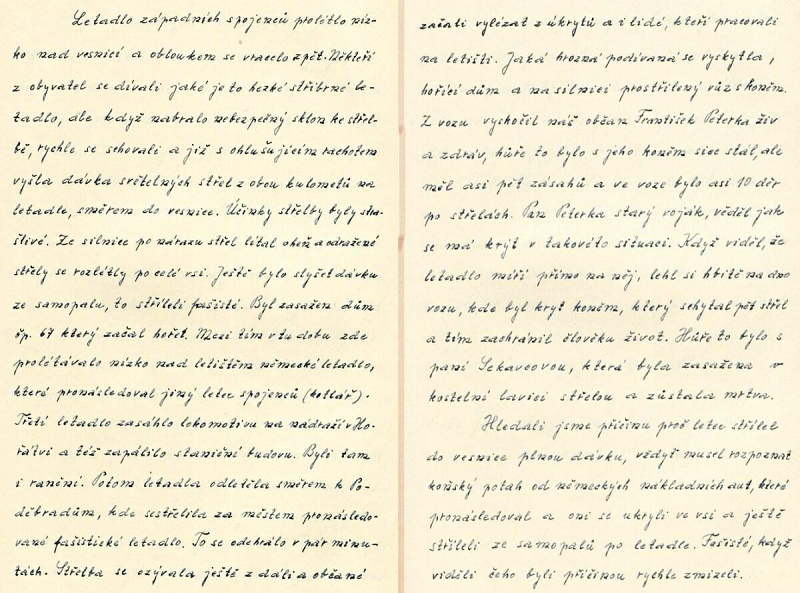 Letadlo západních spojenců prolétlo níz-
ko nad vesnicí a obloukem se vracelo zpět. Někteří
z obyvatel se dívali jaké je to hezké stříbrné le-
tadlo, ale když nabralo nebezpečný sklon ke střel-
bě, rychle se schovali a již s ohlušujícím rachotem
vyšla dávka světelných střel z obou kulometů na
letadle, směrem do vesnice. Účinky střelby byly stra-
šlivé. Ze silnice po nárazu střel létal oheň a odražené
střely se rozlétly po celé vsi. Ještě bylo slyšet dávku
ze samopalu, to stříleli fašisté. Byl zasažen dům
čp. 67 který začal hořet. Mezi tím v tu dobu zde
prolétávalo nízko nad letištěm německé letadlo,
které pronásledoval jiný letec spojenců (kotlář).
Třetí letadlo zasáhlo lokomotivu na nádraží v Ho-
řátvi a též zapálilo staniční budovu. Byli tam
i ranění. Potom letadla odletěla směrem k Po-
děbradům, kde sestřelila za městem pronásledo-
vané fašistické letadlo. To se odehrálo v pár minu-
tách. Střelba se ozývala ještě z dáli a občané
začali vylézat z úkrytů a i lidé, kteří pracovali
na letišti. Jaká hrozná podívaná se vyskytla,
hořící dům a na silnici prostřílený vůz s koněm.
Z vozu vyskočil náš občan František Peterka živ
a zdráv, hůře to bylo s jeho koněm sice stál, ale
měl asi pět zásahů a ve voze bylo asi 10 děr
po střelách. Pan Peterka starý voják, věděl jak
se má krýt v takovéto situaci. Když viděl, že
letadlo míří přímo na něj, lehl si hbitě na dno
vozu, kde byl kryt koněm, který schytal pět střel
a tím zachránil člověku život. Hůře to bylo s
paní Sekavcovou, která byla zasažena v
kostelní lavici střelou a zůstala mrtva.
Hledali jsme příčinu proč letec střílel
do vesnice plnou dávku, vždyť musel rozpoznat
koňský potah od německých nákladních aut, které
pronásledoval a oni se ukryli ve vsi a ještě
stříleli ze samopalů po letadle. Fašisté, když
viděli čeho byli příčinou rychle zmizeli.